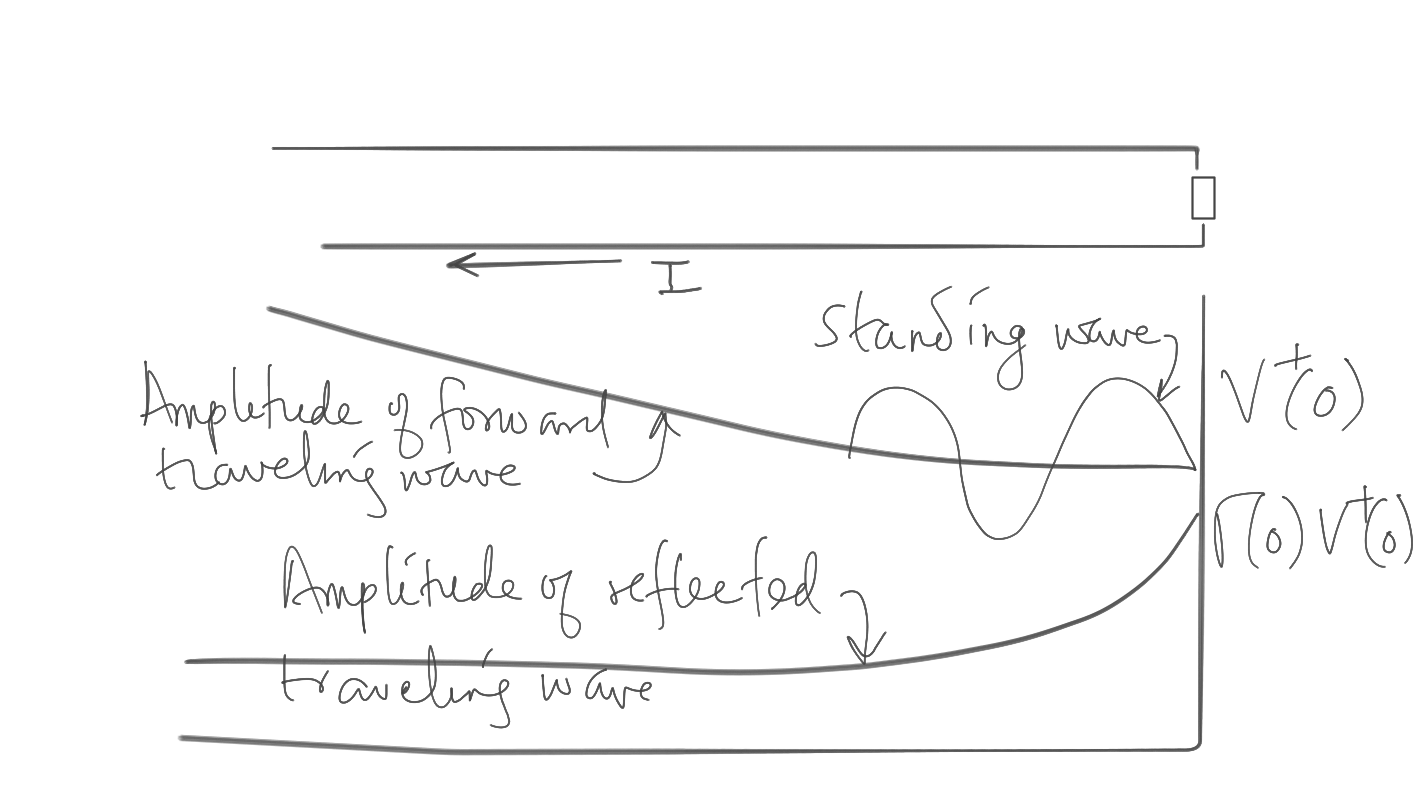 I
Standing wave
V⁺(0)
Amplitude of forward
traveling wave
Γ(0) V⁺(0)
Amplitude of reflected
traveling wave